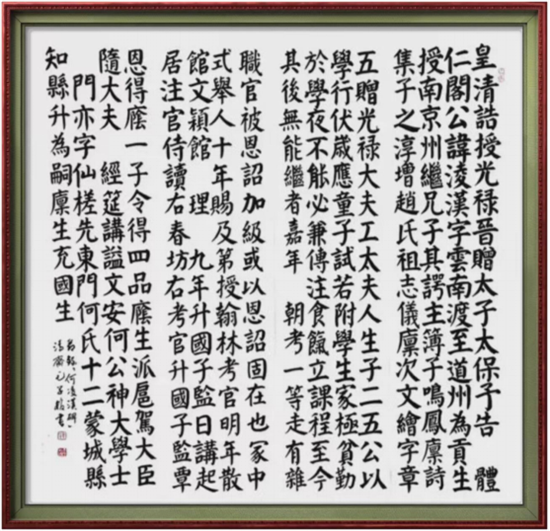 皇清誥授光祿晉贈太子太保予告 體
仁閣公諱淩漢字雲南渡至道州為貢生
授南京州繼兄子其諤主簿子鳴鳳廩詩
集子之淳增趙氏祖志儀廩次文繪字章
五贈光祿大夫工太夫人生子二五公以
學行伏歲應童子試若附學生家極貧勤
於學夜不能必兼傳注食餼立課程至今
其後無能繼者嘉年 朝考一等走有雜
職官被恩詔加級或以恩詔固在也冢中
式舉人十年賜及第授翰林考官明年散
館文穎館 理 九年升國子監日講起
居注官侍讀右春坊右考官升國子監覃
恩得廕一子令得四品廕生派扈駕大臣
隨大夫 經筵講謚文安何公神大學士
門亦字仙槎先東門何氏十二蒙城縣
知縣升為嗣廩生充國生
節錄何淩漢碑